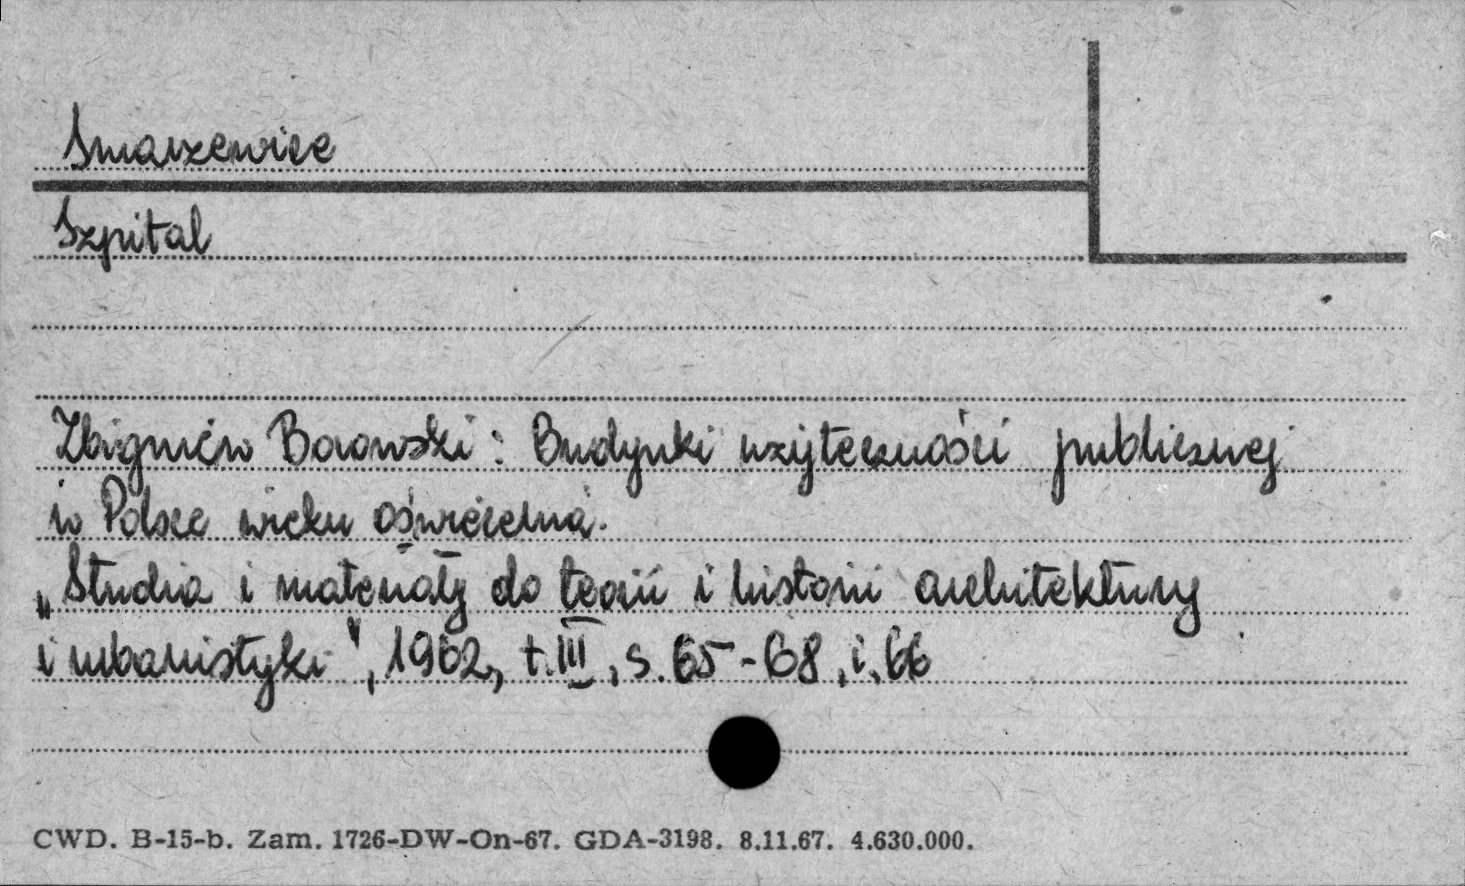 Smarzewice
Szpital
Zbigniew Borowski: Budynki użyteczności publicznej
w Polsce wieku oświecenia.
„Studia i materiały do teorii i historii architektury
i urbanistyki", 1962, t. III, s. 65-68, i. 66
CWD. B-15-b. Zam. 1726-DW-On-67. GDA-3198. 8.11.67. 4.630.000.